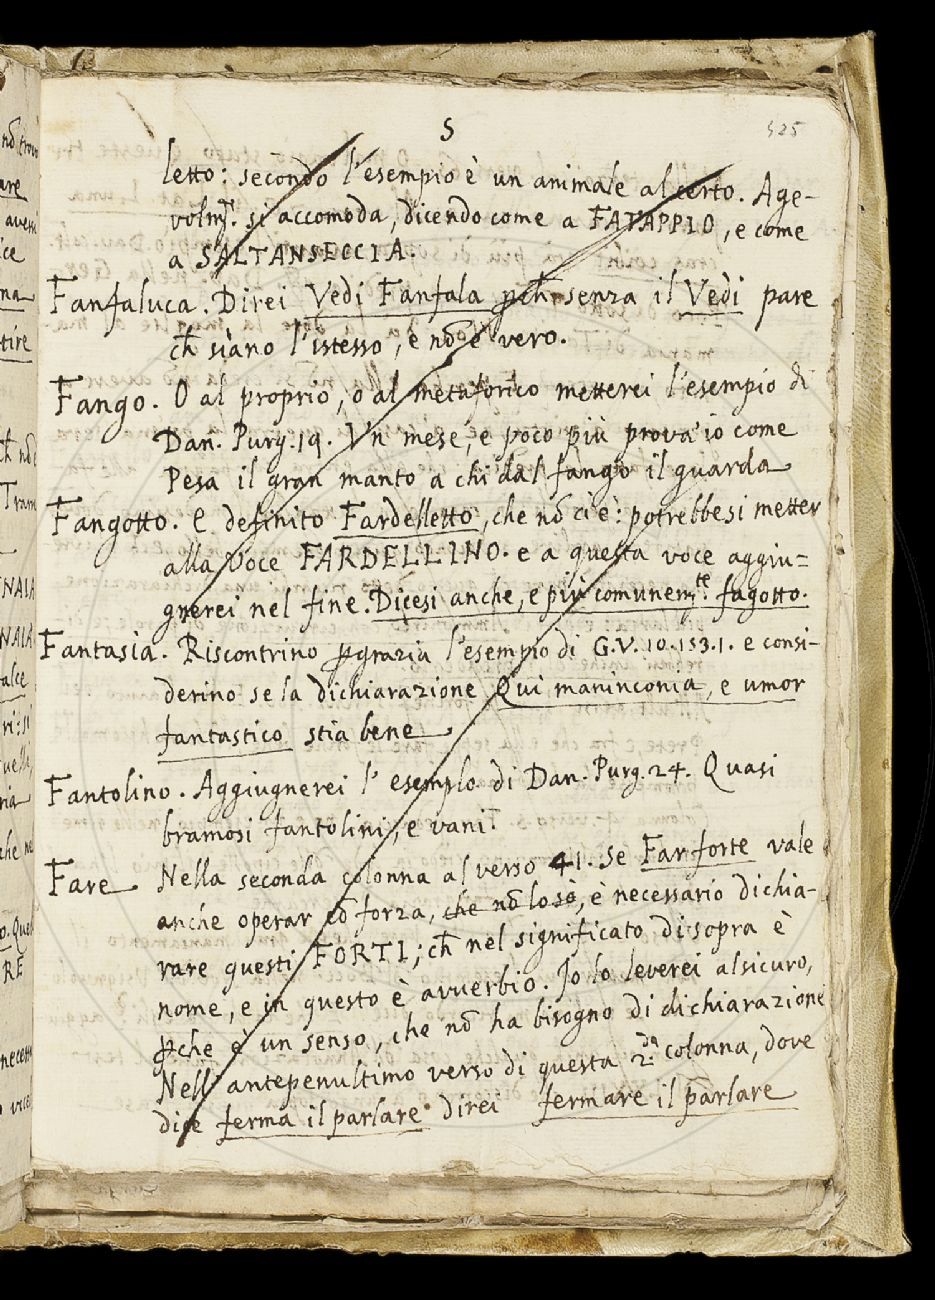 S
525
letto: secondo l'esempio è un animale al certo. Age-
volm.te si accomoda, dicendo come a FATAPPIO, e come
a SALTANSECCIA.
Fanfaluca. Direi Vedi Fanfala p̱ch̄ senza il Vedi pare
ch̄ siano l'istesso, e nō è vero.
Fango. O al proprio, o al metaforico metterei l'esempio di
Dan. Purg. 19. Vn mese, e poco più prova' io come
Pesa il gran manto a chi dal fango il guarda
Fangotto. e definito Fardelletto, che nō ci è: potrebbesi metter
alla voce FARDELLINO. e a questa voce aggiu=
gnerei nel fine. Dicesi anche, e più comunem.te fagotto.
Fantasia. Riscontrino p̱ grazia l'esempio di G.V. 10. 153. 1. e consi-
derino se la dichiarazione Qui maninconia, e umor
fantastico stia bene
Fantolino. Aggiugnerei l'esemplo di Dan. Purg. 24. Quasi
bramosi fantolini, e vani.
Fare Nella seconda colonna al verso 41. se Far forte vale
anche operar cō forza, che nō lo so, è necessario dichia-
rare questi FORTI; ch̄ nel significato di sopra è
nome, e in questo è avverbio. Io lo leverei al sicuro,
p̱che è un senso, che nō ha bisogno di dichiarazione
Nell'antepenultimo verso di questa 2.da colonna, dove
dice ferma il parlare direi fermare il parlare